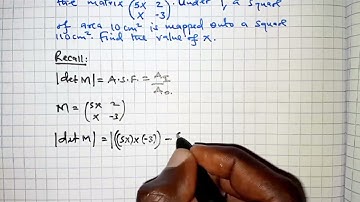 the matrix (5x 2
x -3). Under T, a square
of area 10cm² is mapped onto a square
110cm². Find the value of x.
Recall:
|det M| = A.S.F. = A_I / A_O.
M = (5x 2
x -3)
|det M| = |((5x)x(-3)) -